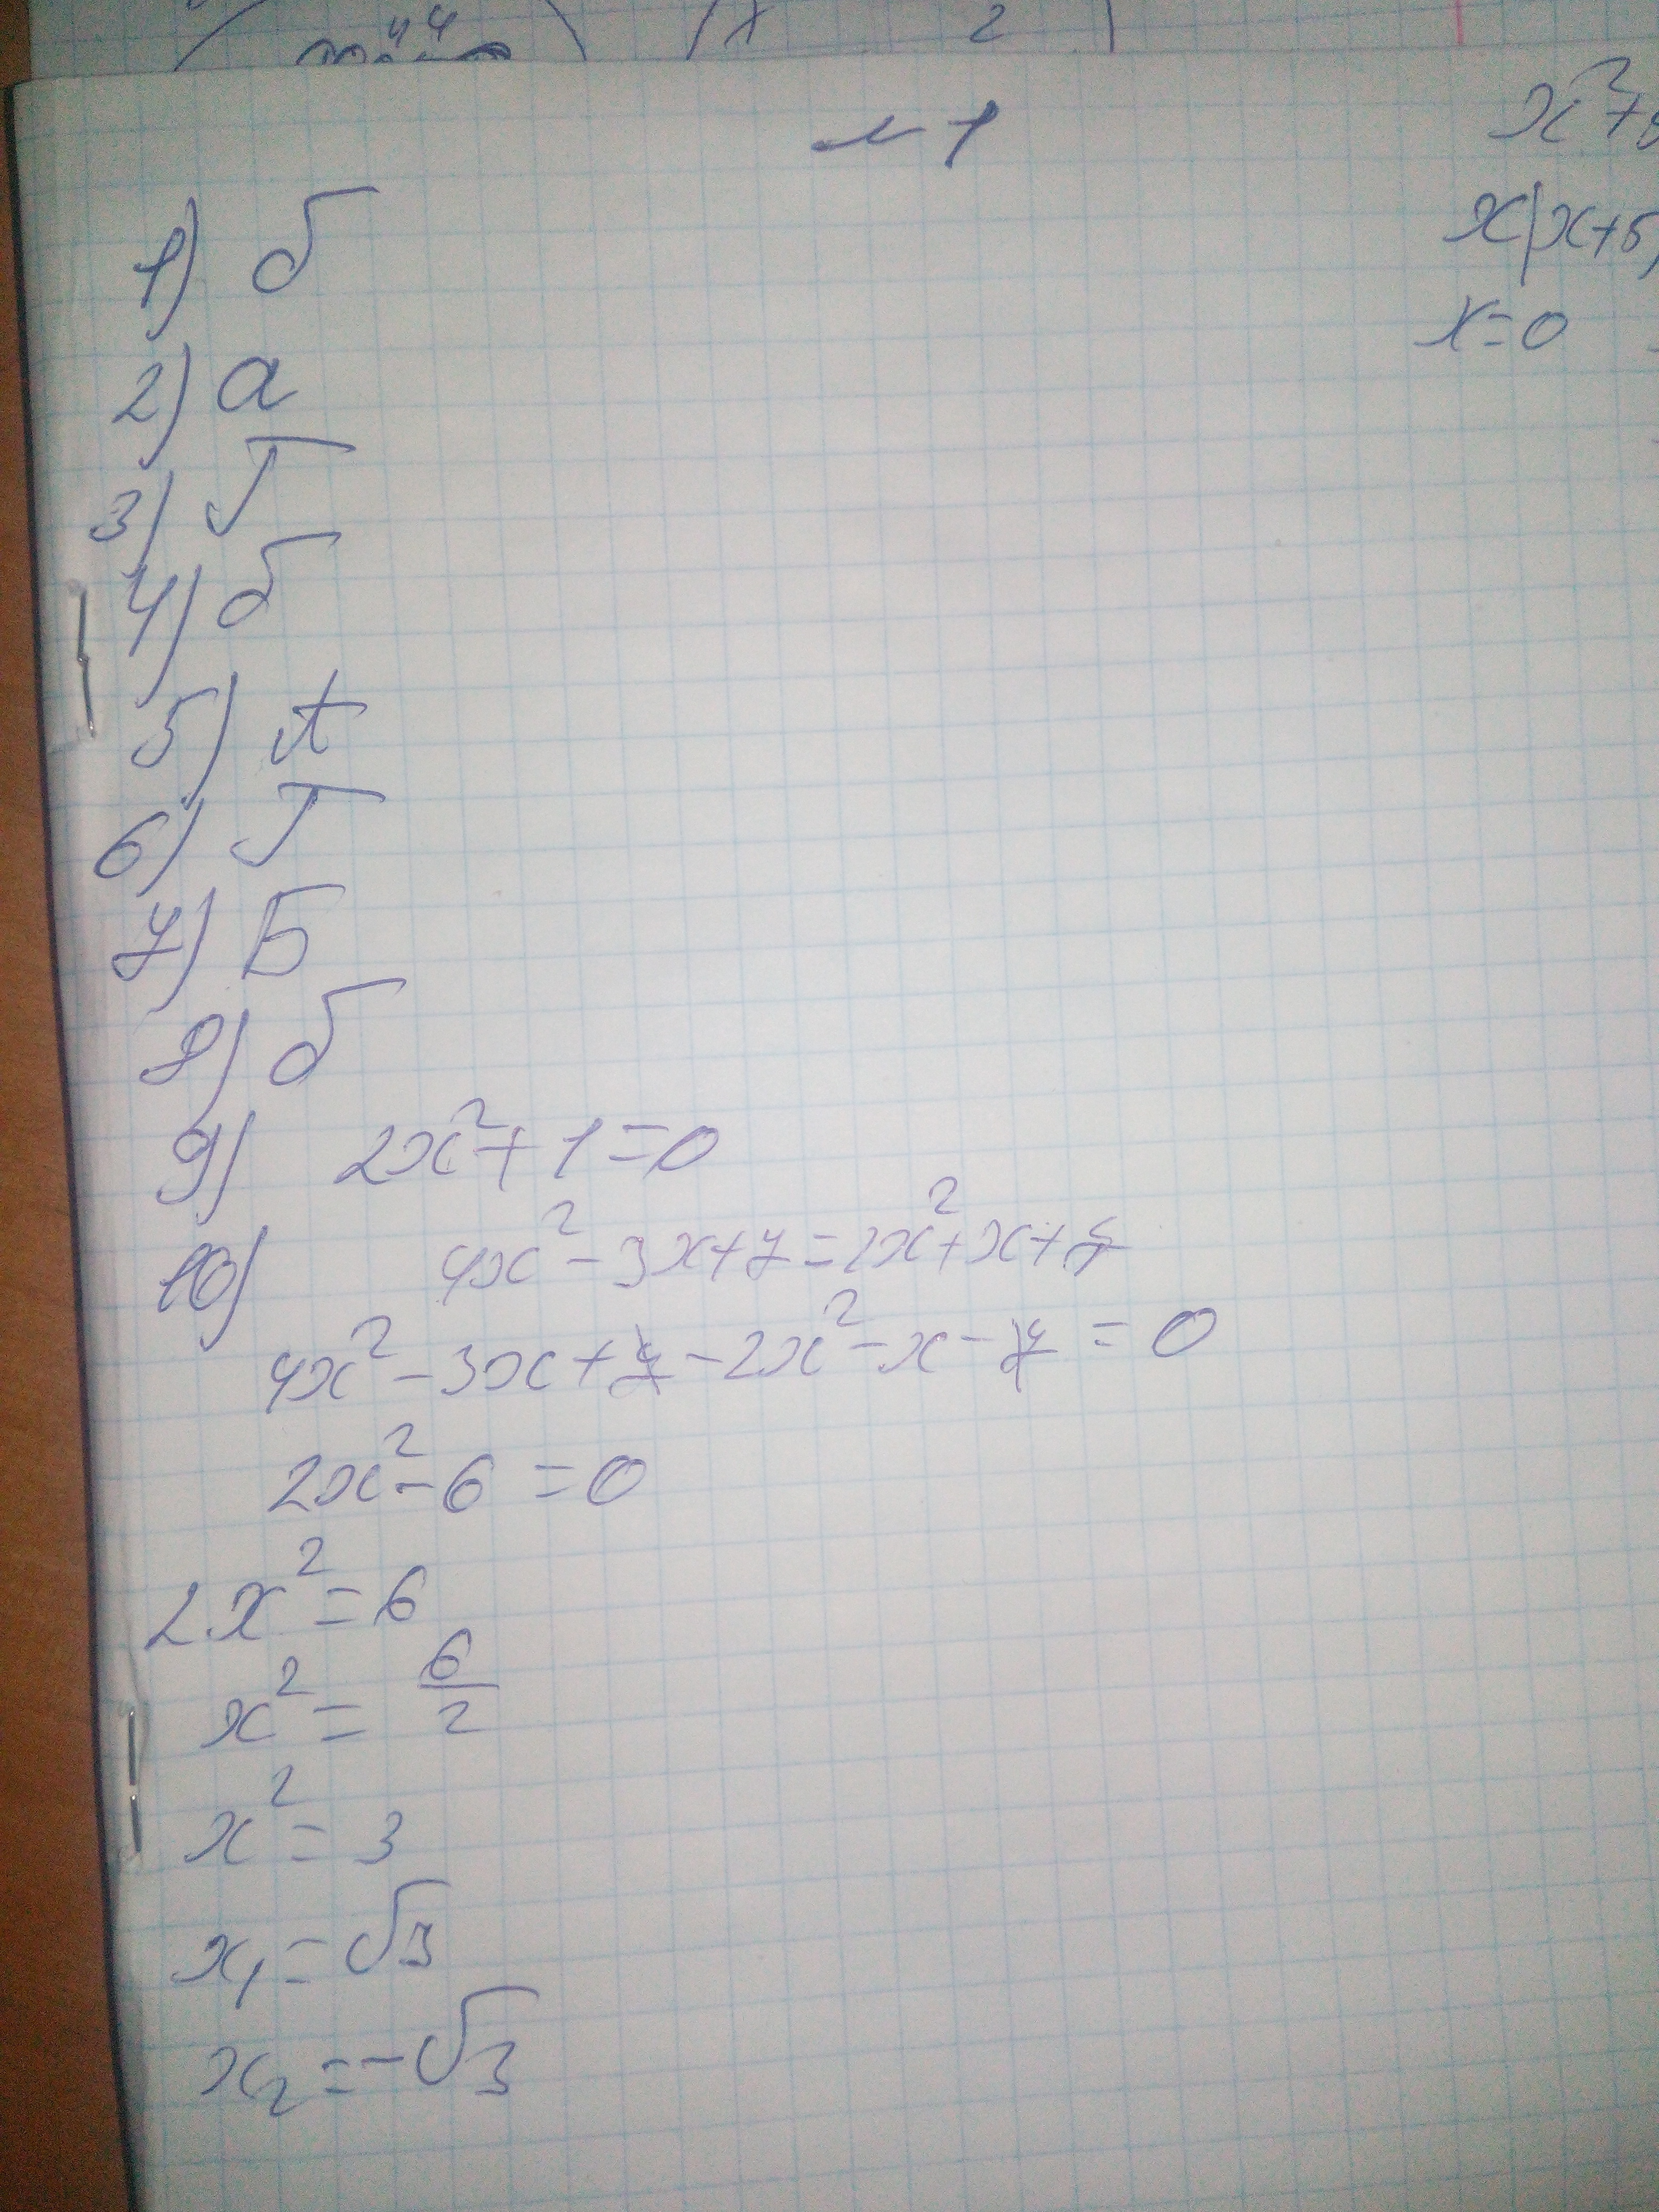 №1
1) б
2) а
3) Г
4) б
5) А
6) Г
7) Б
8) б
9) 2x²+1=0
10) 4x²-3x+7=2x²+x+7
4x²-3x+7-2x²-x-7=0
2x²-6=0
2x²=6
x²=6/2
x²=3
x₁=√3
x₂=-√3
x²+
x(x+5)
x=0